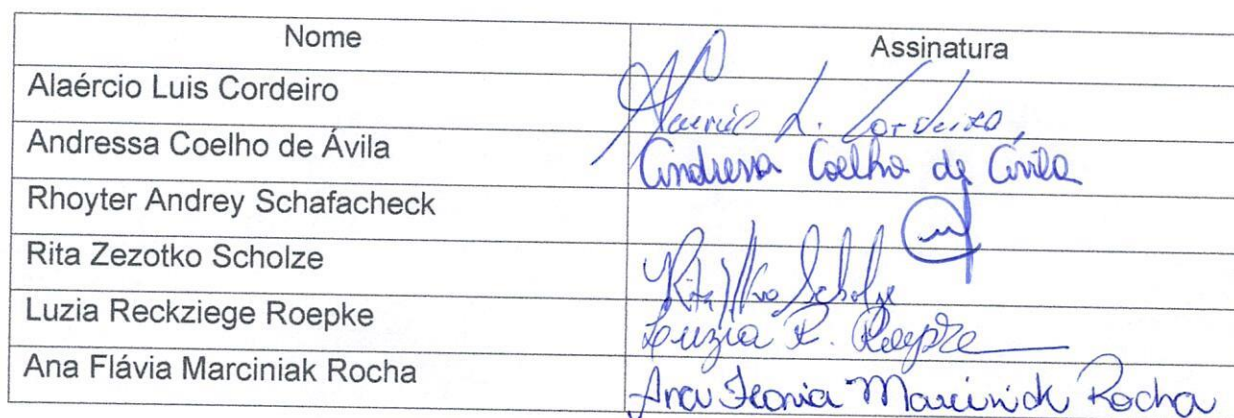 Nome Assinatura
Alaércio Luis Cordeiro L. Cordeiro,
Andressa Coelho de Ávila Andressa Coelho de Ávila
Rhoyter Andrey Schafacheck
Rita Zezotko Scholze Rita Scholze
Luzia Reckziege Roepke Luzia R. Roepke
Ana Flávia Marciniak Rocha Ana Flavia Marciniak Rocha